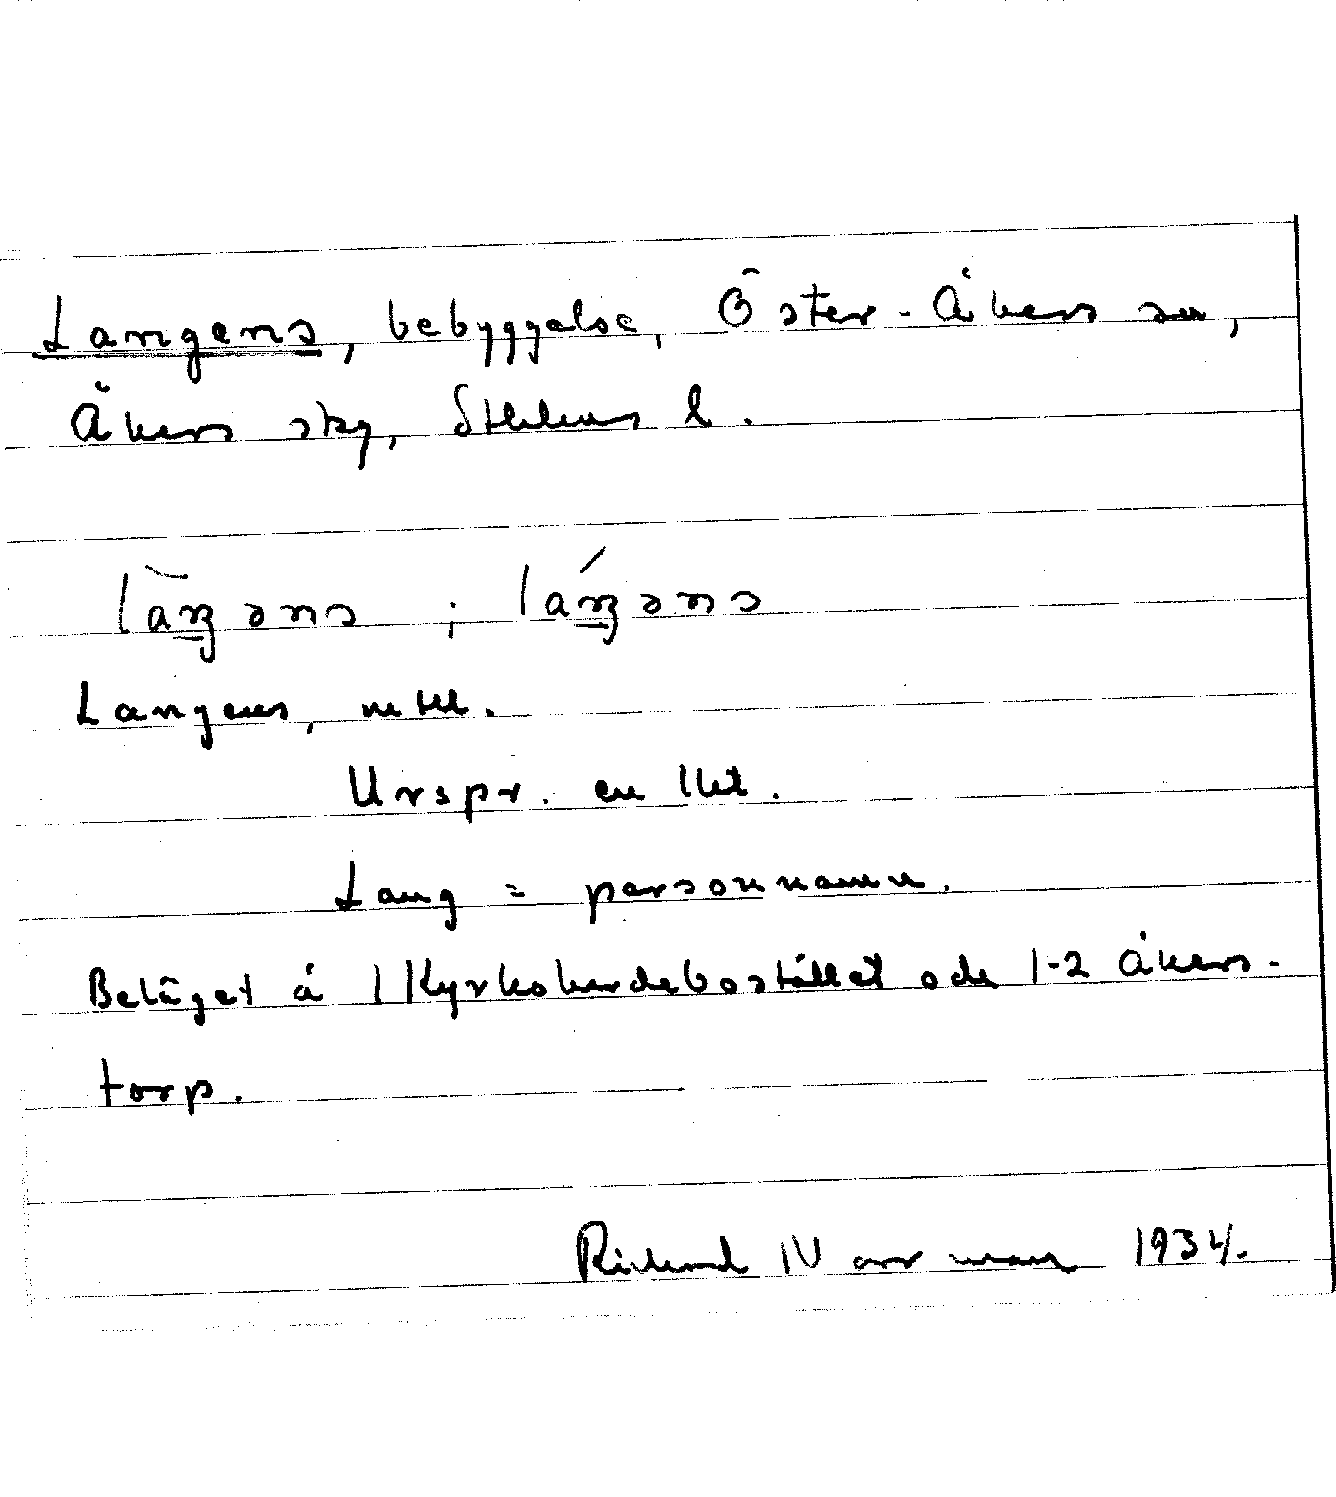 Langens, bebyggelse, Öster-Åkers sn,
Åkers skg, Sthlms l.
Langens,
Urspr. en lht.
Lang = personnamn.
Beläget å 1 Kyrkoherdebostället och 1-2 Åkers-
torp.
Rickard 1934.